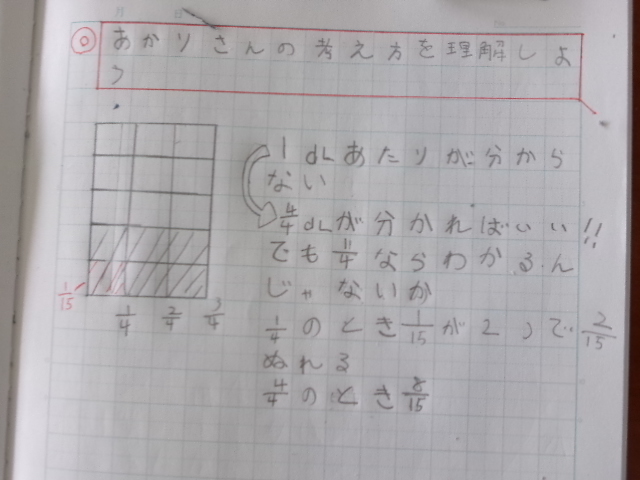 ◎ あかりさんの考え方を理解しよ
う
1dLあたりが分から
ない
4/4dLが分かればいい!!
でも1/4ならわかるん
じゃないか
1/4のとき1/15が2つで2/15
ぬれる
4/4のとき8/15
1/15
1/4 2/4 3/4